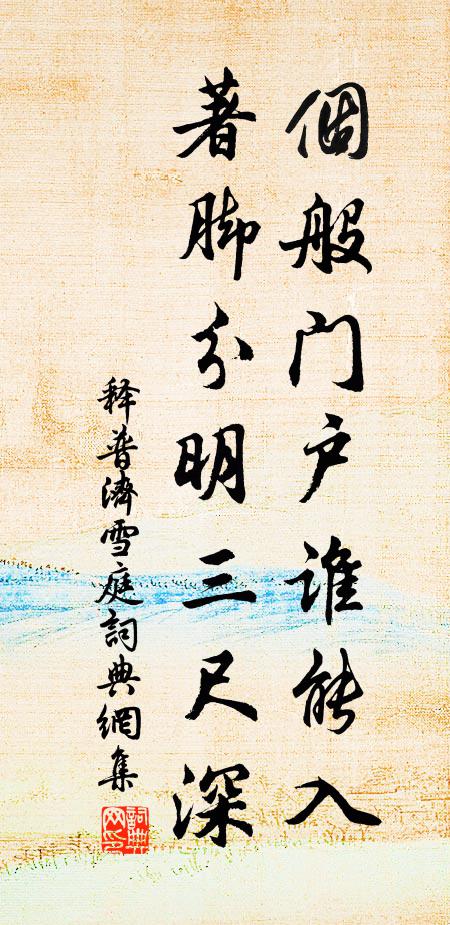 個般门户谁能入
著脚分明三尺深
释普濟雪庭詞典網集
詞典網印